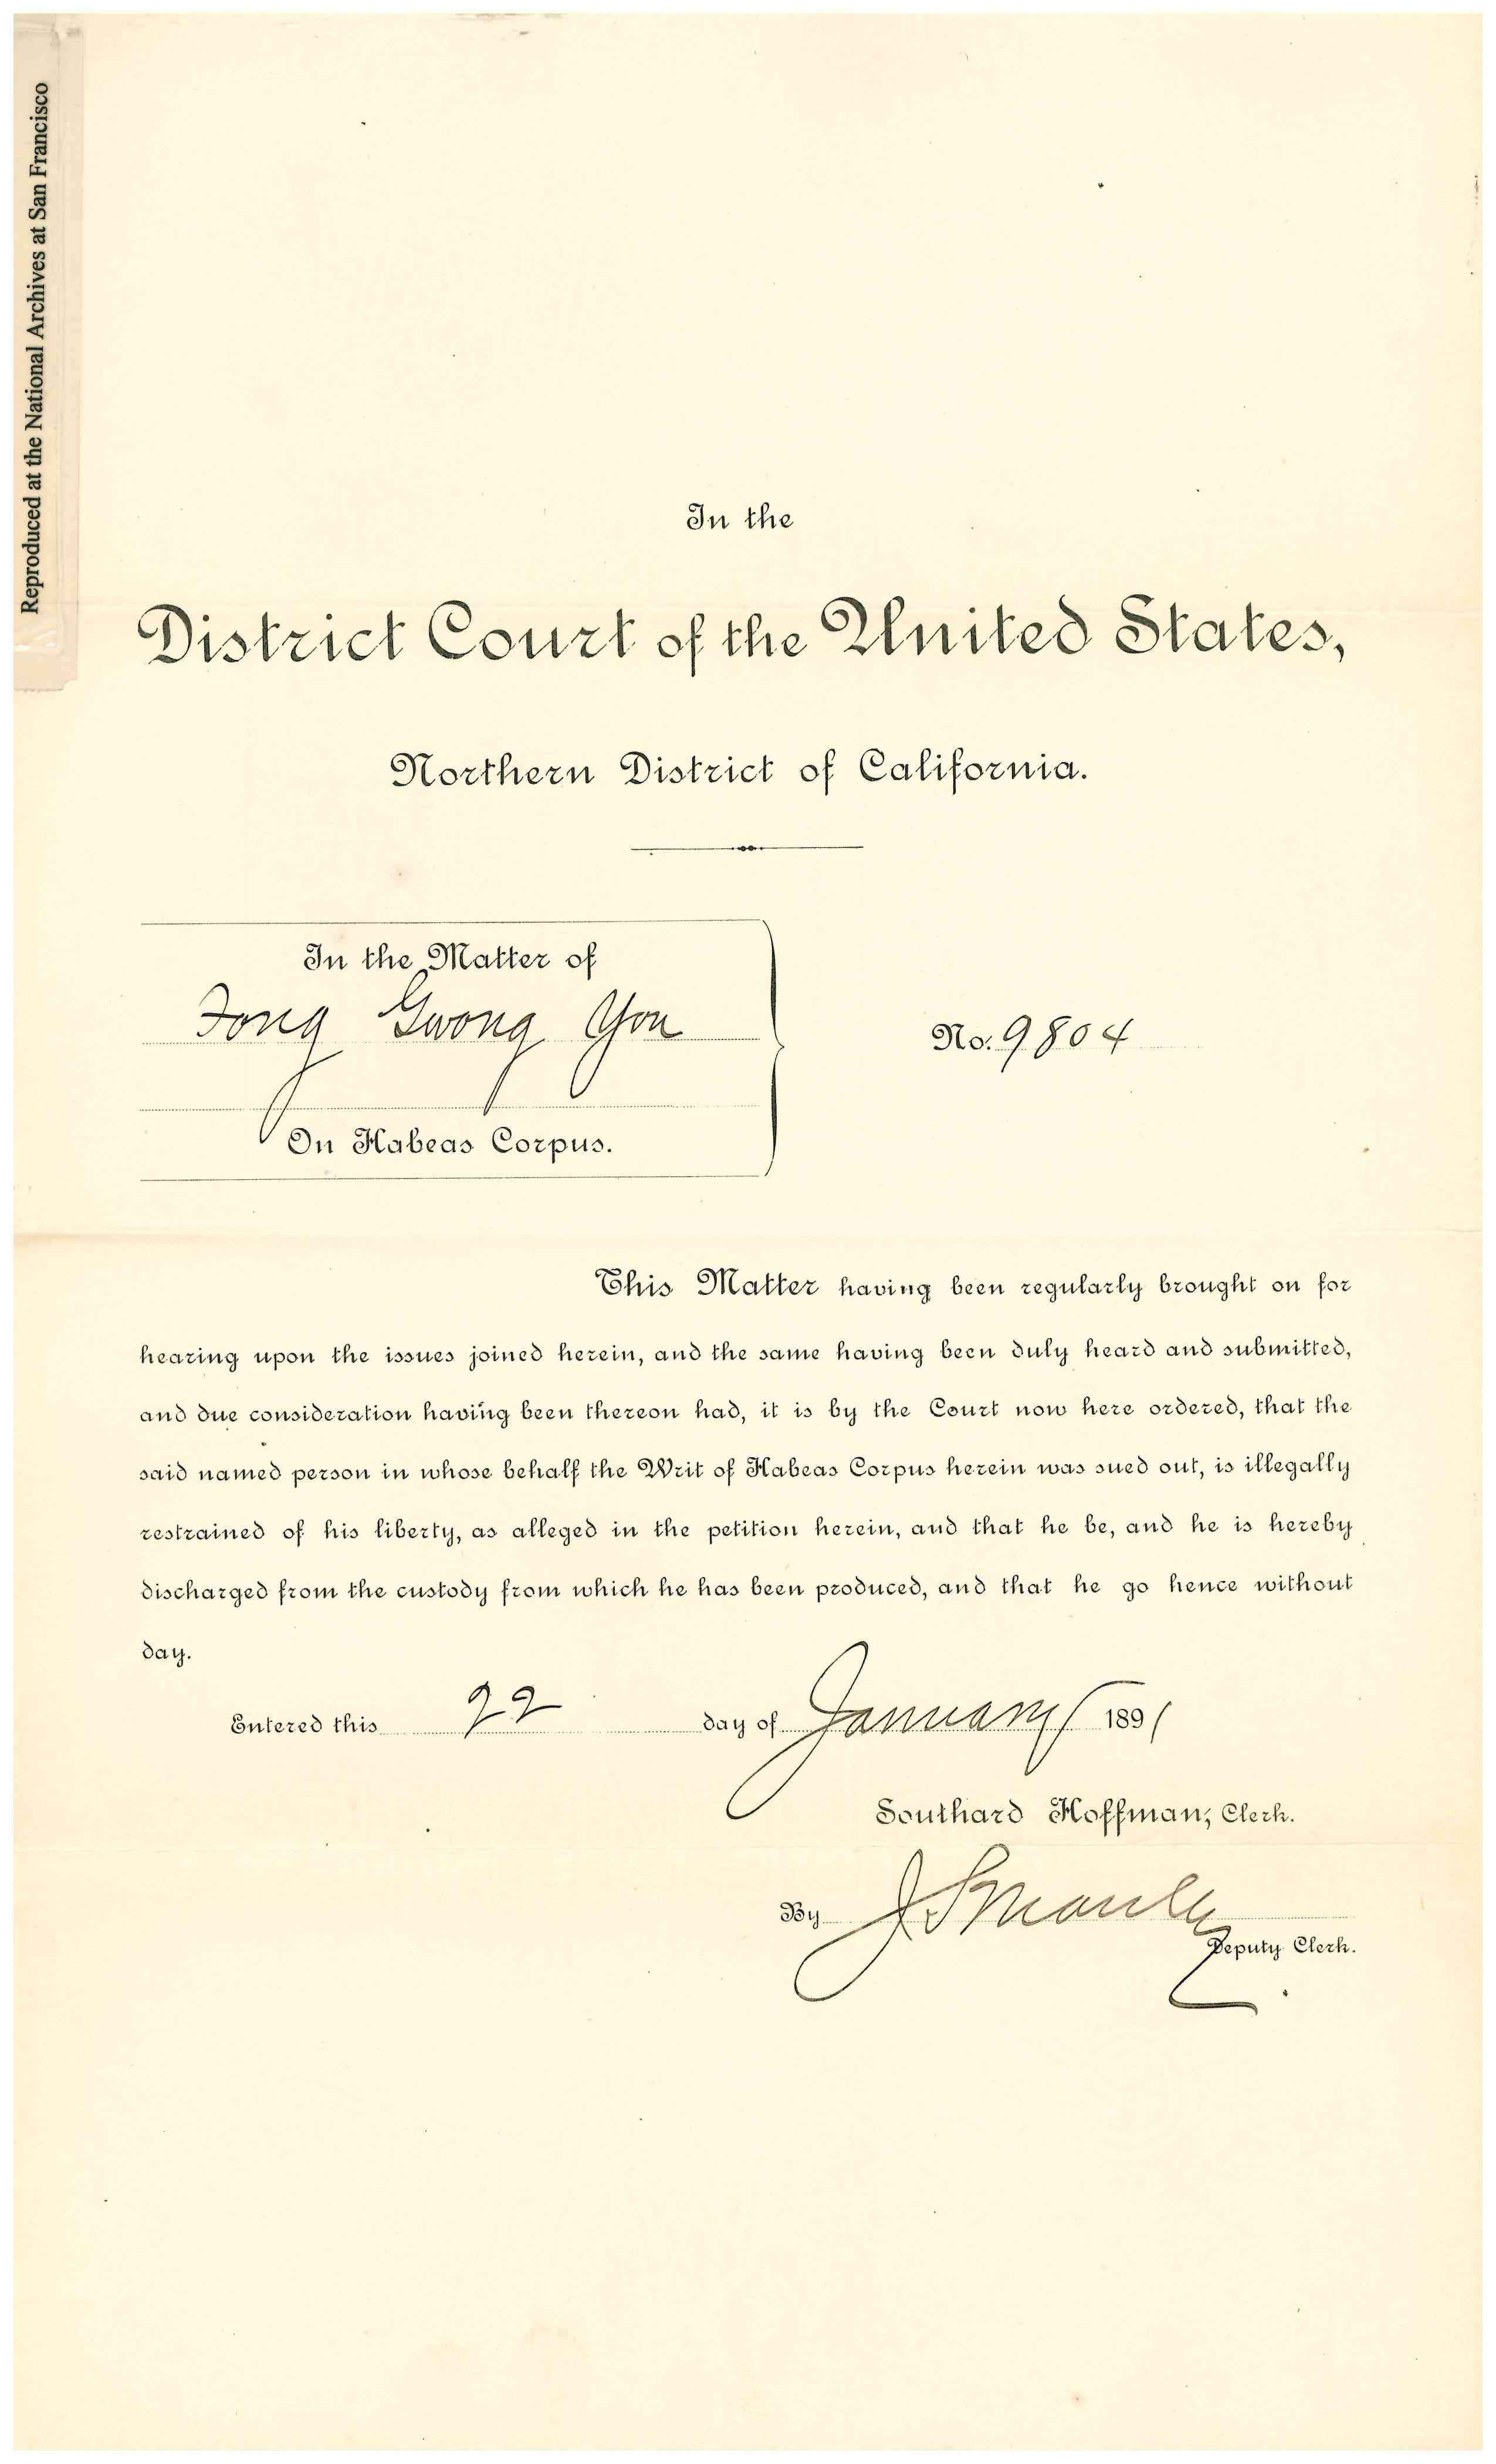 Reproduced at the National Archives at San Francisco
In the
District Court of the United States,
Northern District of California.
In the Matter of
Fong Gwong You
On Habeas Corpus.
No. 9804
This Matter having been regularly brought on for
hearing upon the issues joined herein, and the same having been duly heard and submitted,
and due consideration having been thereon had, it is by the Court now here ordered, that the
said named person in whose behalf the Writ of Habeas Corpus herein was sued out, is illegally
restrained of his liberty, as alleged in the petition herein, and that he be, and he is hereby
discharged from the custody from which he has been produced, and that he go hence without
day.
Entered this 22 day of January 1891
Southard Hoffman, Clerk.
By
Deputy Clerk.